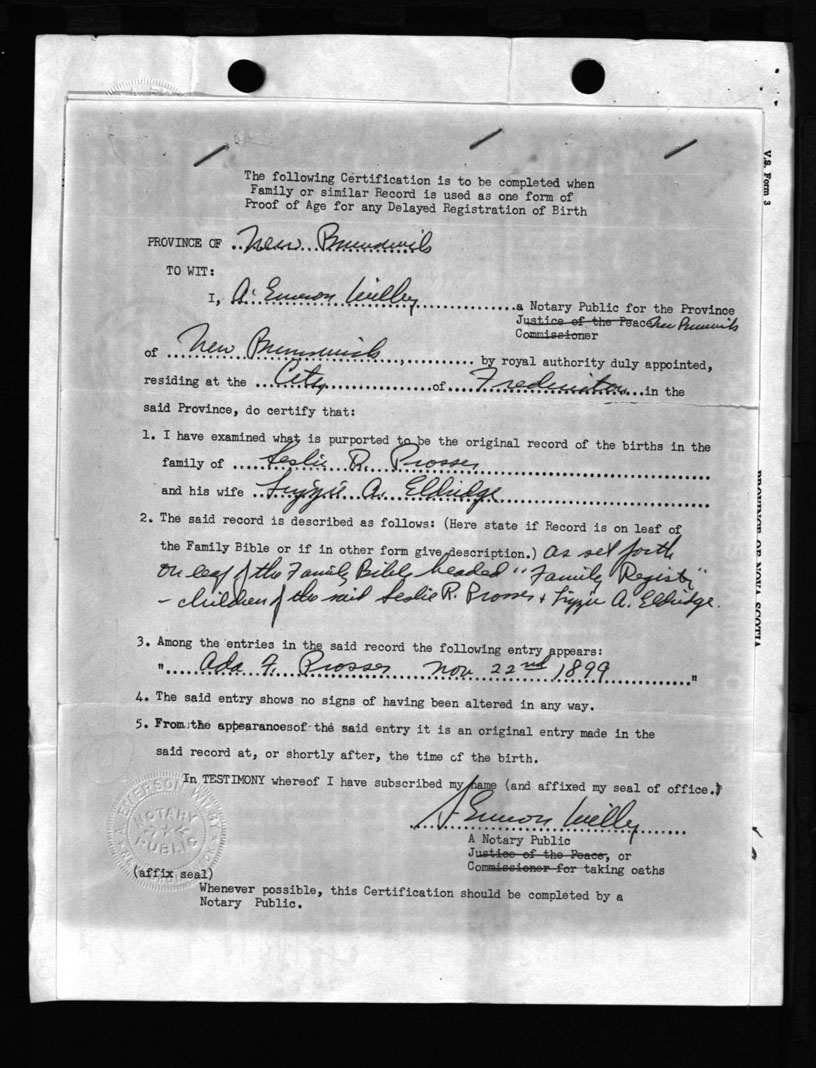 V.S. Form 3
The following Certification is to be completed when
Family or similar Record is used as one form of
Proof of Age for any Delayed Registration of Birth
PROVINCE OF ..New Brunswick
TO WIT:
I, A. Emerson Willey...............a Notary Public for the Province
Justice of the Peace New Brunswick
Commissioner
of ...New Brunswick..,.......... by royal authority duly appointed,
residing at the ...City.................of ....Fredericton...in the
said Province, do certify that:
1. I have examined what is purported to be the original record of the births in the
family of ....Leslie R. Prosser
and his wife ..Lizzie A. Eldridge
2. The said record is described as follows: (Here state if Record is on leaf of
the Family Bible or if in other form give description.) as set forth
on leaf of the Family Bible headed "Family Registry"
- children of the said Leslie R. Prosser & Lizzie A. Eldridge.
PROVINCE OF NOVA SCOTIA
3. Among the entries in the said record the following entry appears:
"....Ada F. Prosser Nov. 22nd 1899"
4. The said entry shows no signs of having been altered in any way.
5. From the appearances of the said entry it is an original entry made in the
said record at, or shortly after, the time of the birth.
In TESTIMONY whereof I have subscribed my name (and affixed my seal of office.)
A. Emerson Willey
A Notary Public
Justice of the Peace, or
Commissioner for taking oaths
A. EMERSON WILLEY
NOTARY
PUBLIC
(affix seal)
Whenever possible, this Certification should be completed by a
Notary Public.